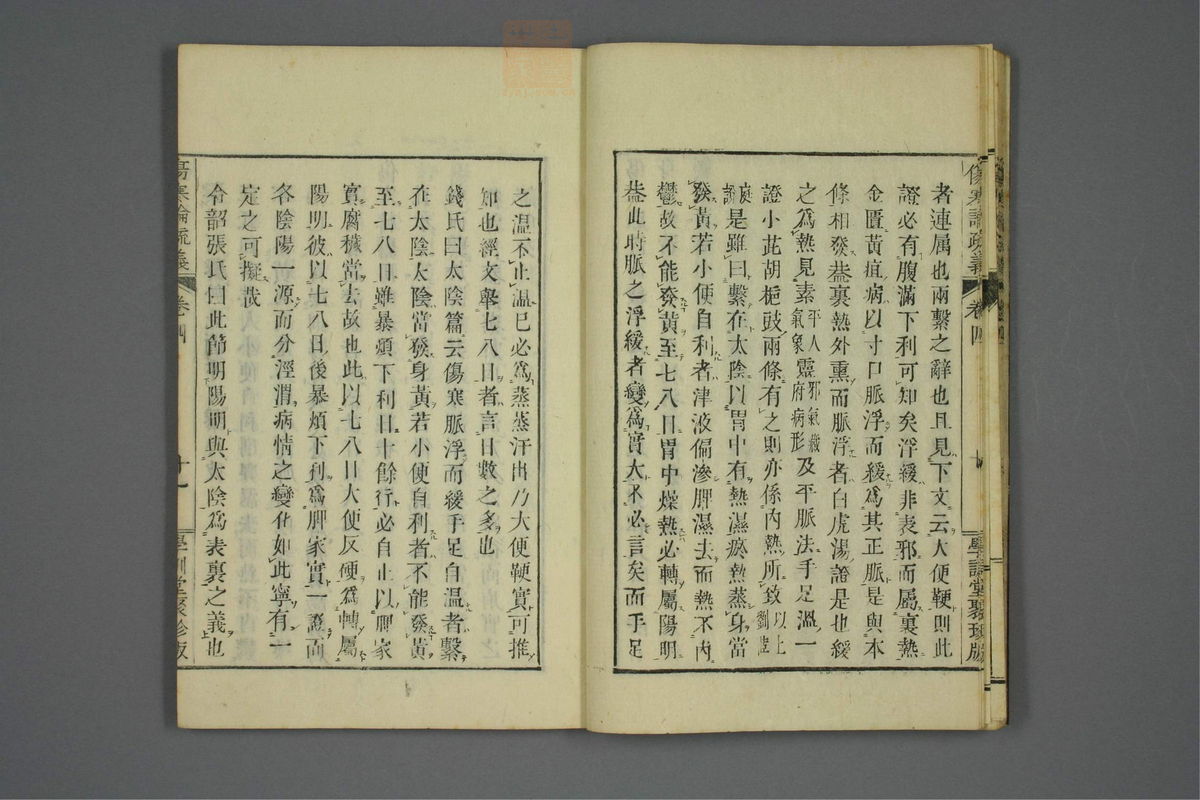 傷寒論疏義
卷四
十
學訓堂聚珍版
者連属也兩繫之辭也且見下文云大便鞕則此
證必有腹滿下利可知矣浮緩非表邪而屬裏熱
金匱黃疸病以寸口脈浮而緩爲其正脈是與本
條相發葢裏熱外熏而脈浮者白虎湯證是也緩
之爲熱見素平人氣象靈邪氣藏府病形及平脈法手足溫一
證小茈胡梔豉兩條有之則亦係内熱所致以上劉茝
庭說是雖曰繫在太陰以胃中有熱濕瘀熱蒸身當
發黃若小便自利者津液偏滲脾濕去而熱不内
鬱故不能發黃至七八日胃中燥熱必轉屬陽明
葢此時脈之浮緩者變爲實大不必言矣而手足
之温不止温已必爲蒸蒸汗出乃大便鞕實可推
知也經文舉七八日者言日數之多也
錢氏曰太陰篇云傷寒脈浮而緩手足自温者繫
在太陰太陰當發身黃若小便自利者不能發黃
至七八日雖暴煩下利日十餘行必自止以脾家
實腐穢當去故也此以七八日大便反硬爲轉屬
陽明彼以七八日後暴煩下利爲脾家實一證而
各陰陽一源而分涇渭病情之變化如此寧有一
定之可擬哉
令韶張氏曰此節明陽明與太陰爲表裏之義也
傷寒論疏義
卷四
十一
學訓堂聚珍版